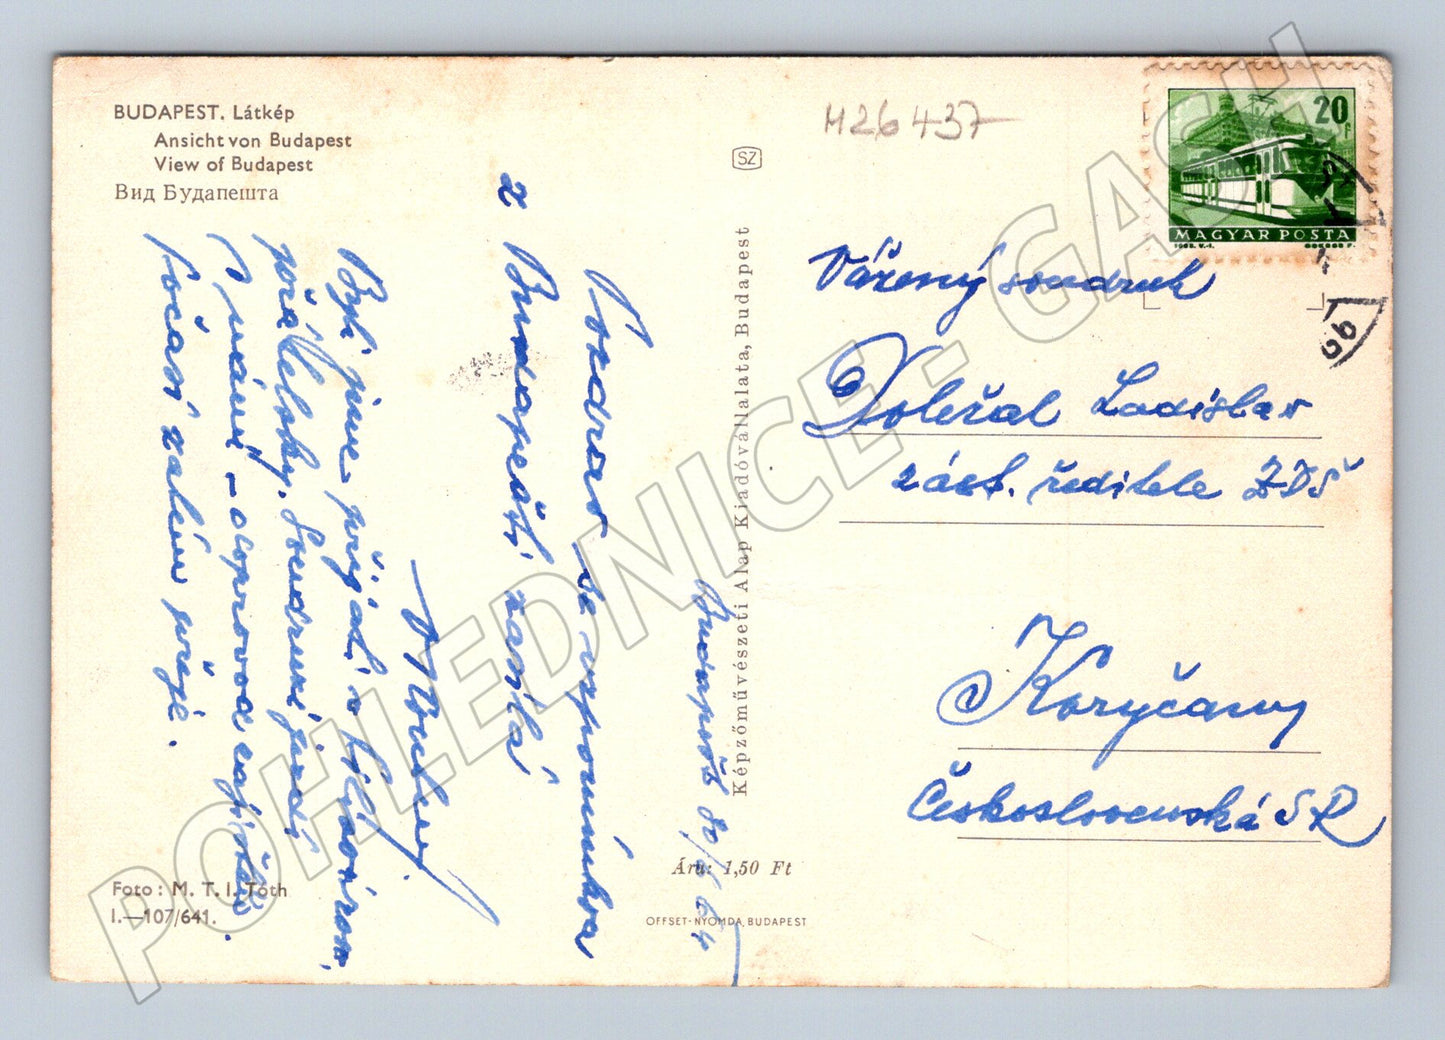 BUDAPEST. Látkép
Ansicht von Budapest
View of Budapest
Вид Будапешта
M26437
SZ
20 f
MAGYAR POSTA
Vážený soudruh
Doležal Ladislav
zást. ředitele ZDŠ
Koryčany
Československá SR
Budapešť
Pozdrav a vzpomínka
z Budapešti zasílá
Byli jsme přijati
přátelsky. Soudruzi
počasí zatím přeje.
Képzőművészeti Alap Kiadóvállalata, Budapest
Ára: 1,50 Ft
OFFSET-NYOMDA, BUDAPEST
Foto: M. T. I. Tóth
I.—107/641.
POHLEDNICE - GASH